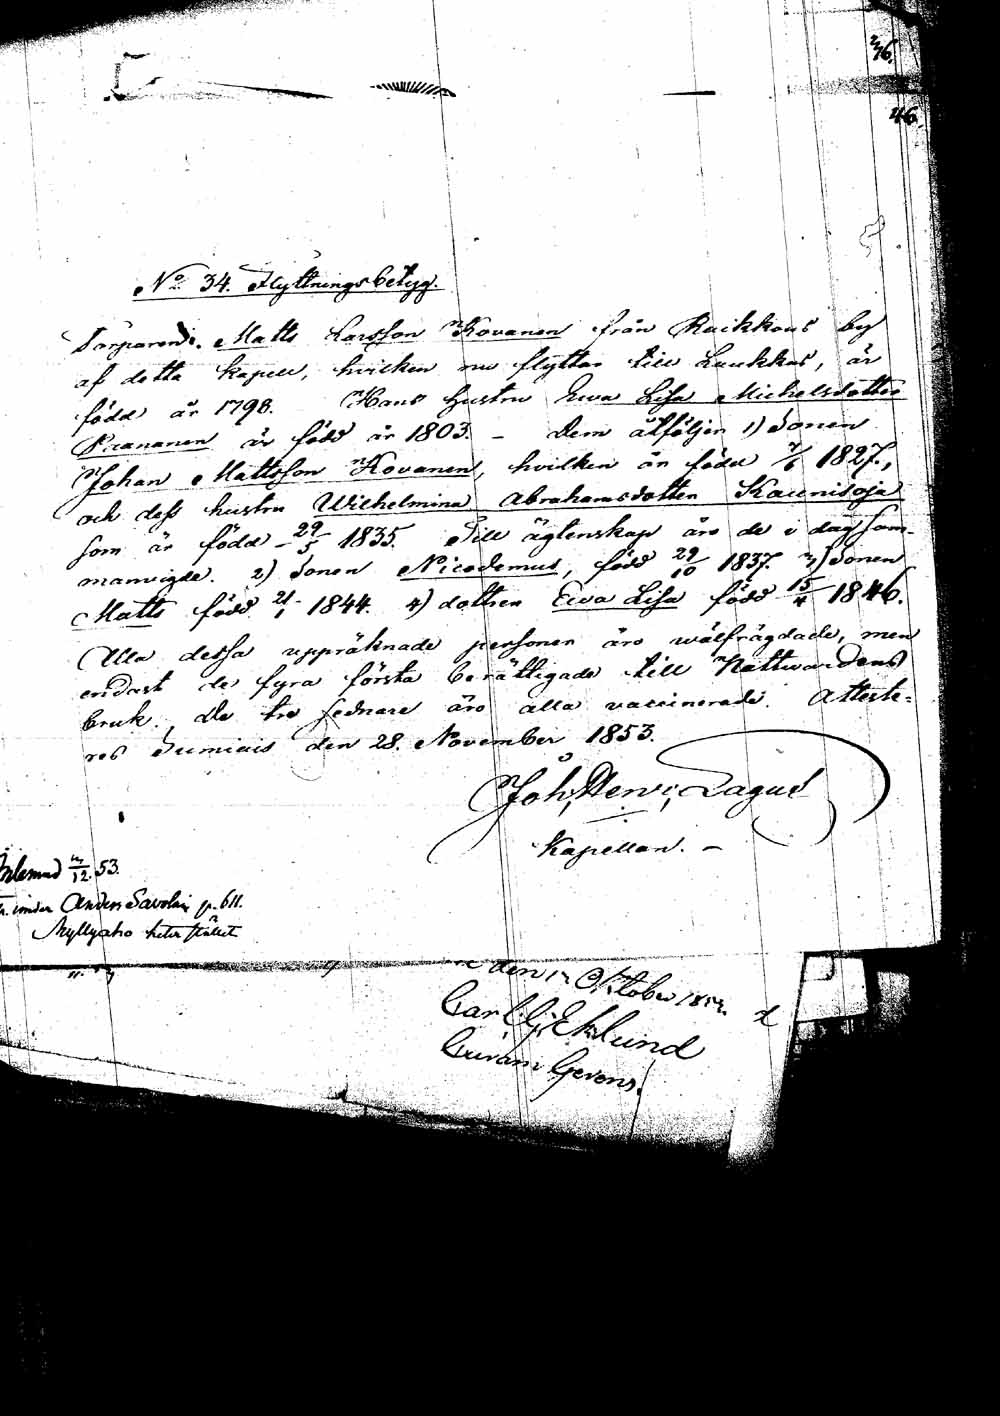 46.
No 34. Flyttningsbetyg.
Torparen Matts Larsson Kovanen från Raikkaus by
af detta kapell, hvilken nu flyttar till Laukkas, är
född år 1798. Hans hustru Ewa Lisa Michelsdotter
Paananen är född år 1803. – Dem åtföljer 1) Sonen
Johan Mattsson Kovanen, hvilken är född 7/6 1827,
och dess hustru Wilhelmina Abrahamsdotter Kaunisoja
som är född 29/5 1835. Till ägtenskap äro de i dag sam-
manvigde. 2) Sonen Nicodemus, född 29/10 1837. 3) Sonen
Matts född 21/1 1844. 4) dottren Ewa Lisa född 15/4 1846.
Alla dessa uppräknade personer äro wälfrägdade, men
endast de fyra första berättigade till Nattvardens
bruk. De tre sednare äro alla vaccinerade. Atteste-
res Sumiais den 28. November 1853.
Joh. Henr. Lagus
Kapellan. –
12. 53.
under Anders Savolain p. 611.
Myllyaho heter stället
den 17 Oktober
Carl G. Eklund